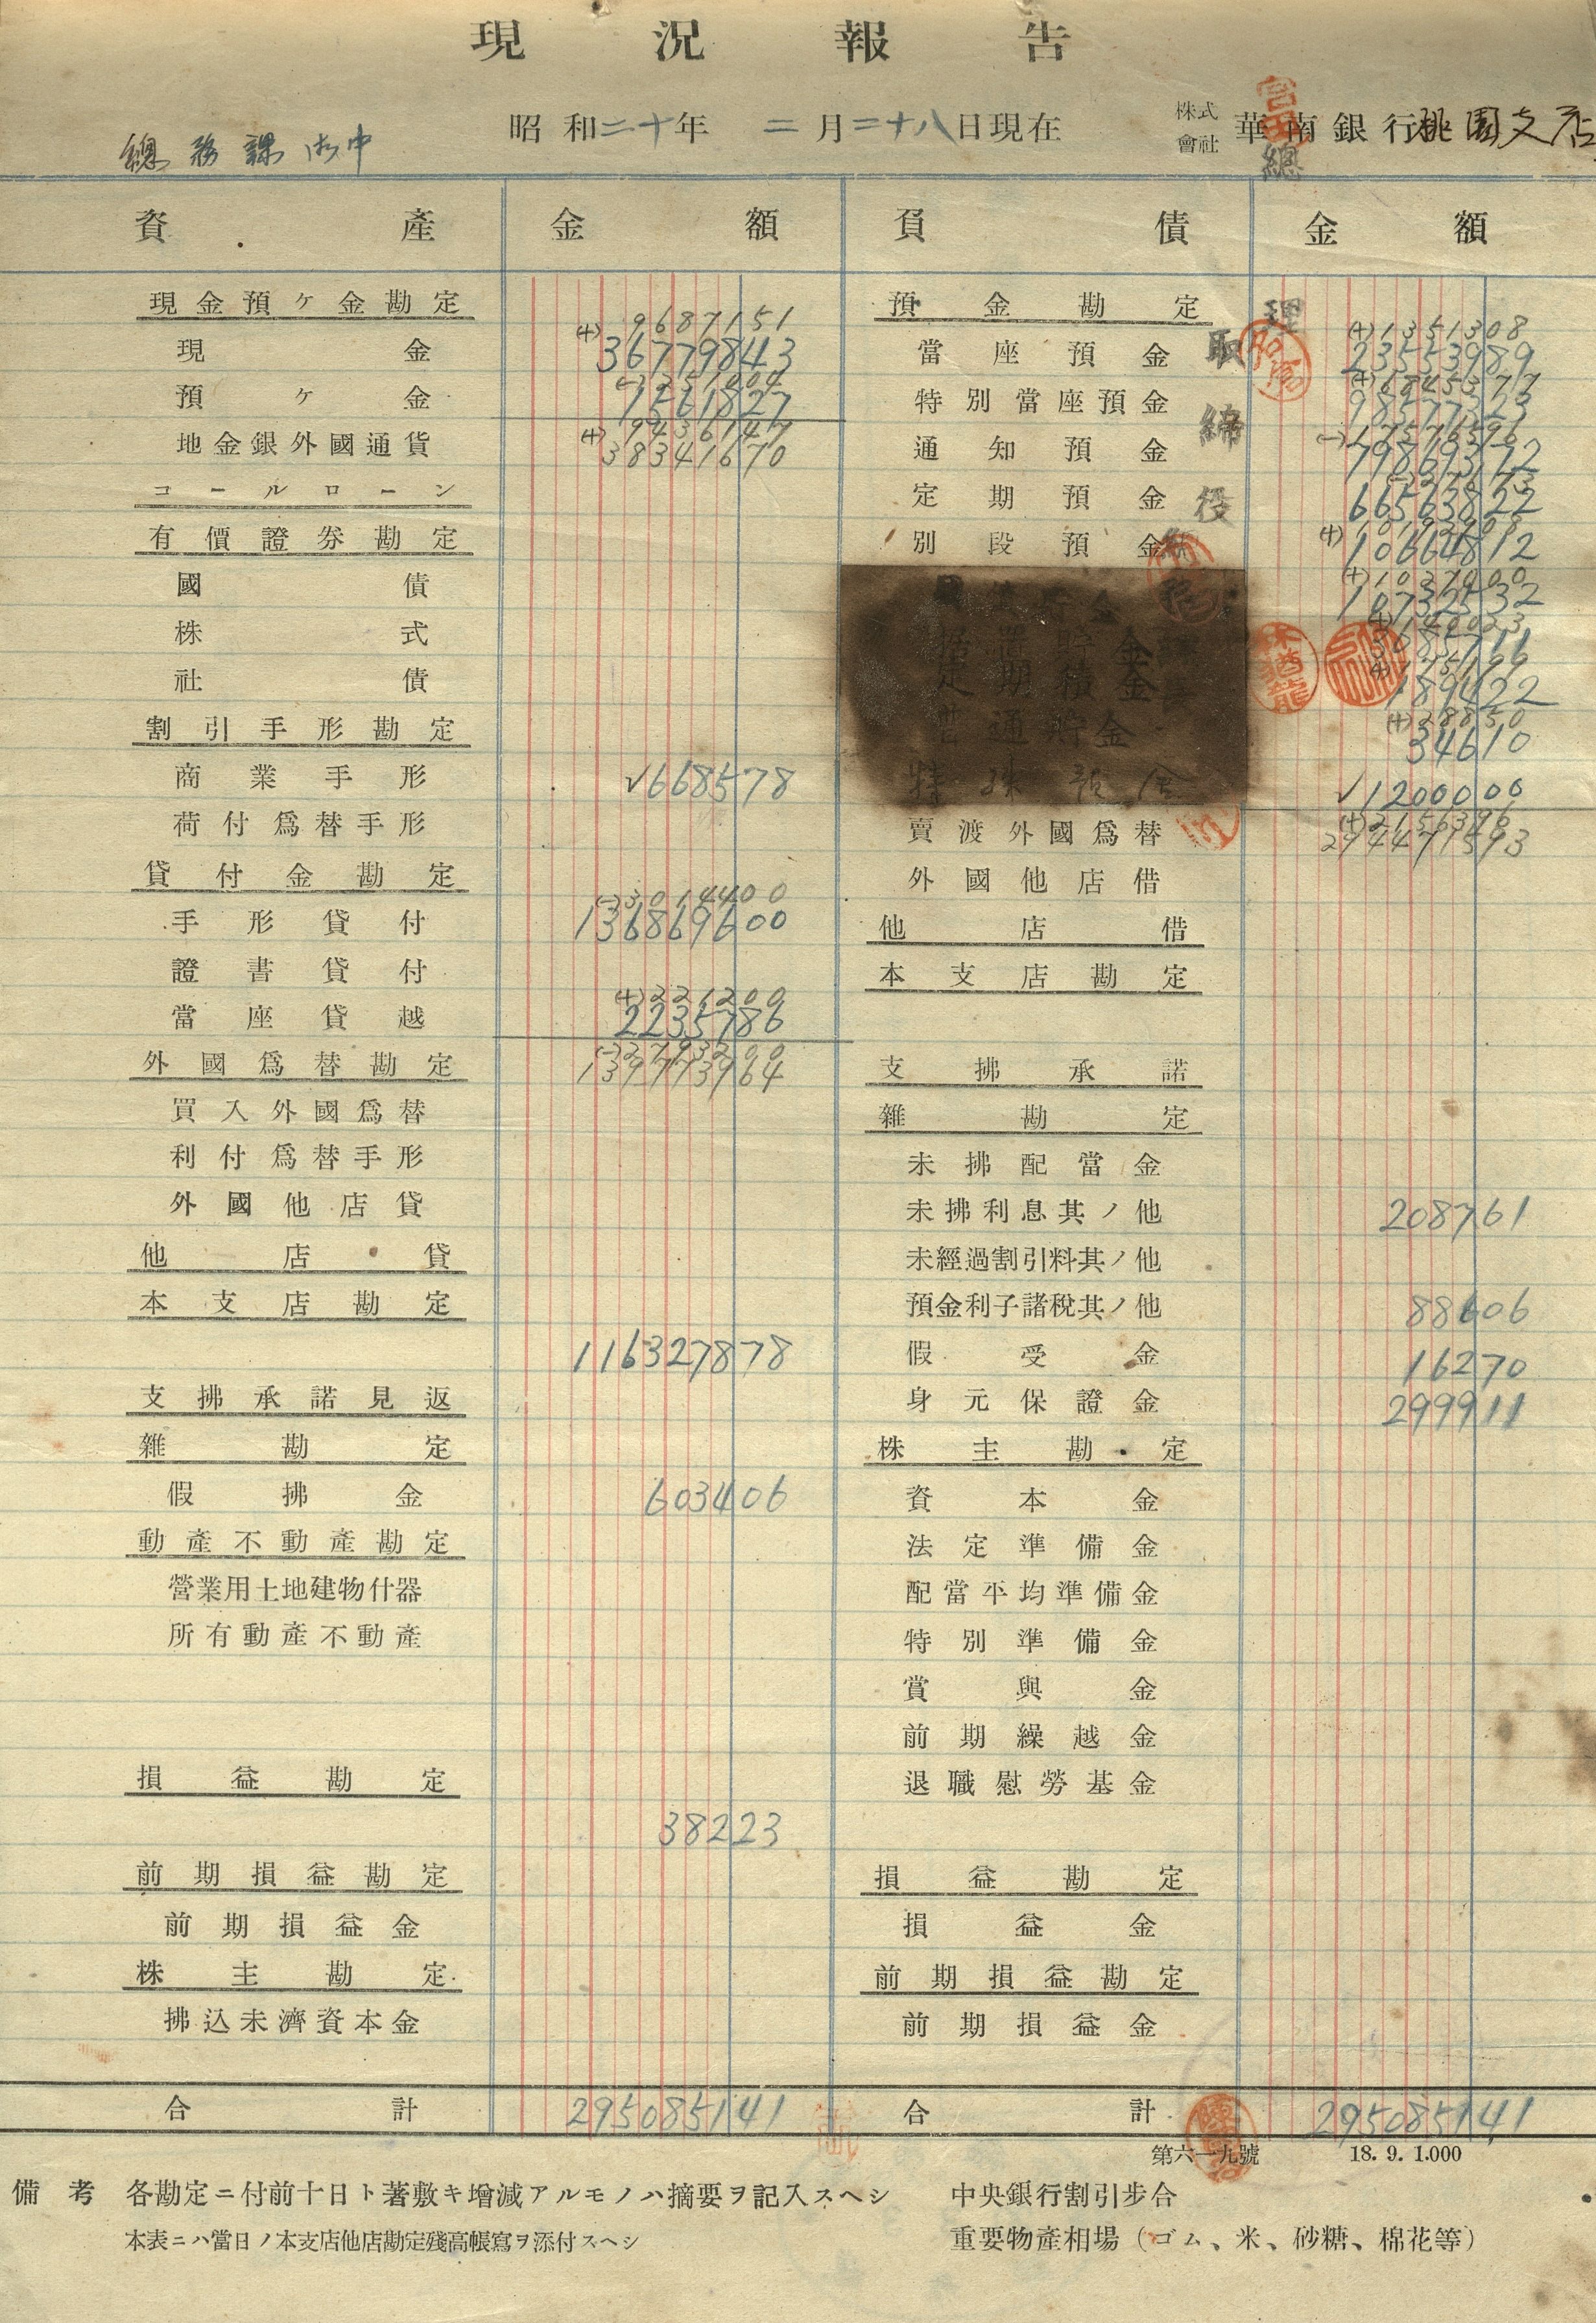 現況報告
昭和二十年 二月二十八日現在
株式會社 華南銀行桃園支店
總務課御中
資產 金額 負債 金額
現金預ケ金勘定
(+)9687151
現金 36779843
預ケ金 1561827
(+)9436147
地金銀外國通貨 38341670
コールローン
有價證券勘定
國債
株式
社債
割引手形勘定
商業手形 √668578
荷付爲替手形
貸付金勘定
(-)3014400
手形貸付 136869600
證書貸付
(+)231200
當座貸越 2235786
外國爲替勘定 139773964
買入外國爲替
利付爲替手形
外國他店貸
他店貸
本支店勘定
116327878
支拂承諾見返
雜勘定
假拂金 603406
動產不動產勘定
營業用土地建物什器
所有動產不動產
損益勘定
38223
前期損益勘定
前期損益金
株主勘定
拂込未濟資本金
合計 295085141
預金勘定
(+)1351308
當座預金 23553989
特別當座預金 98577323
通知預金 79869372
定期預金 66563822
別段預金 10664812
据置貯金
定期積金
普通貯金 34610
特殊預金 √1200000
賣渡外國爲替 294471593
外國他店借
他店借
本支店勘定
支拂承諾
雜勘定
未拂配當金
未拂利息其ノ他 208761
未經過割引料其ノ他
預金利子諸稅其ノ他 88606
假受金 16270
身元保證金 299911
株主勘定
資本金
法定準備金
配當平均準備金
特別準備金
賞與金
前期繰越金
退職慰勞基金
損益勘定
損益金
前期損益勘定
前期損益金
合計 295085141
第六一九號 18. 9. 1.000
備考 各勘定ニ付前十日ト著敷キ增減アルモノハ摘要ヲ記入スヘシ
本表ニハ當日ノ本支店他店勘定殘高帳寫ヲ添付スヘシ
中央銀行割引步合
重要物產相場（ゴム、米、砂糖、棉花等）